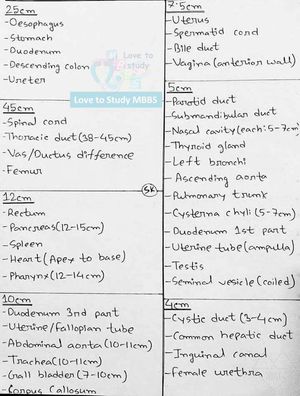 25cm
-Oesophagus
-Stomach
-Duodenum
-Descending colon
-Ureter
Love to
study
Love to Study MBBS
45cm
-Spinal cord
-Thoracic duct (38-45cm)
-Vas/Ductus difference
-Femur
12cm
-Rectum
-Pancreas (12-15cm)
-Spleen
-Heart (Apex to base)
-Pharynx (12-14cm)
10cm
-Duodenum 3rd part
-Uterine/Fallopian tube
-Abdominal aorta (10-11cm)
-Trachea (10-11cm)
-Gall bladder (7-10cm)
-Corpus Callosum
SK
7.5cm
-Uterus
-Spermatid cord
-Bile duct
-Vagina (anterior wall)
5cm
-Parotid duct
-Submandibular duct
-Nasal cavity (each: 5-7cm)
-Thyroid gland
-Left bronchi
-Ascending aorta
-Pulmonary trunk
-Cysterna chyli (5-7cm)
-Duodenum 1st part
-Uterine tube (ampulla)
-Testis
-Seminal vesicle (coiled)
4cm
-Cystic duct (3-4cm)
-Common hepatic duct
-Inguinal canal
-Female urethra